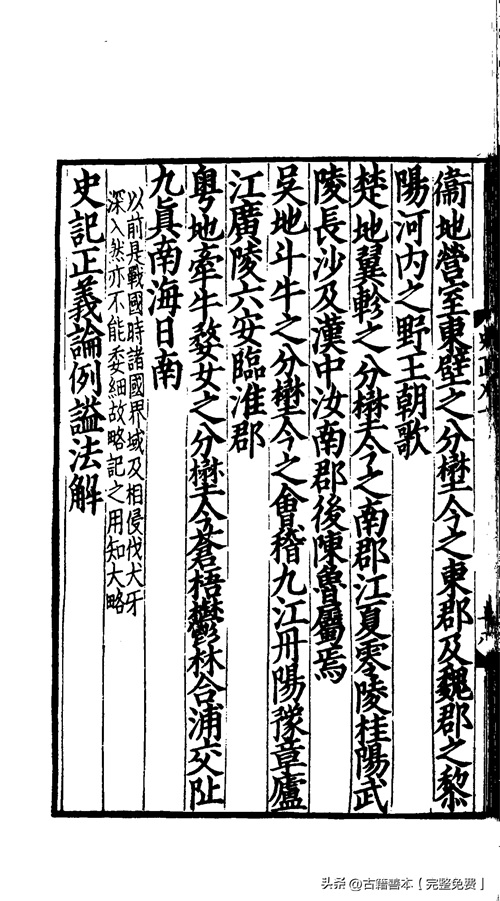 衞地營室東壁之分壄今之東郡及魏郡之黎
陽河內之野王朝歌
楚地翼軫之分壄今之南郡江夏零陵桂陽武
陵長沙及漢中汝南郡後陳魯屬焉
吳地斗牛之分壄今之會稽九江丹陽豫章廬
江廣陵六安臨淮郡
粵地牽牛婺女之分壄今蒼梧鬱林合浦交阯
九眞南海日南
以前是戰國時諸國界域及相侵伐犬牙
深入然亦不能委細故略記之用知大略
史記正義論例謚法解
头条 @古籍善本【完整免费】